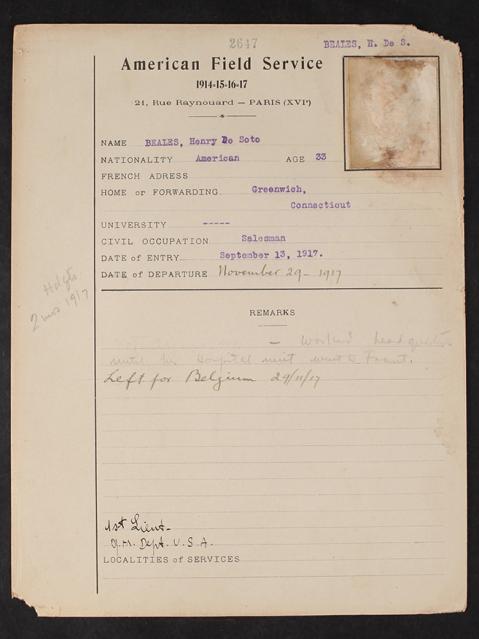 2647
BEALES, H. De S.
American Field Service
1914-15-16-17
21, Rue Raynouard — PARIS (XVIe)
NAME BEALES, Henry De Soto
NATIONALITY American AGE 33
FRENCH ADRESS
HOME or FORWARDING Greenwich,
Connecticut
UNIVERSITY -----
CIVIL OCCUPATION Salesman
DATE of ENTRY September 13, 1917.
DATE of DEPARTURE November 29 - 1917
Hdqts
2 mos 1917
REMARKS
— Worked headquarters
until his Hospital unit went to Front.
Left for Belgium 29/11/17
1st Lieut-
Q.M. Dept. U.S.A.
LOCALITIES of SERVICES